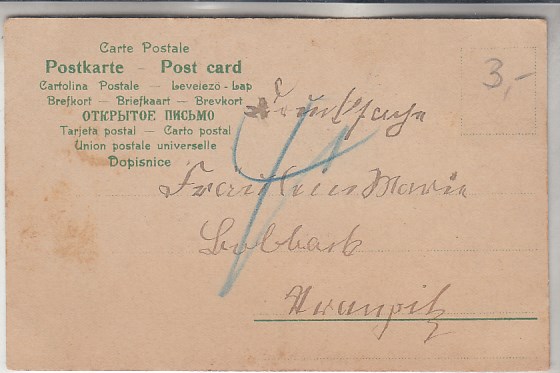 Carte Postale
Postkarte – Post card
Cartolina Postale — Levelező - Lap
Brefkort — Briefkaart — Brevkort
ОТКРЫТОЕ ПИСЬМО
Tarjeta postal — Carto postal
Union postale universelle
Dopisnice
3,-
Drucksache
Fräulein Marie